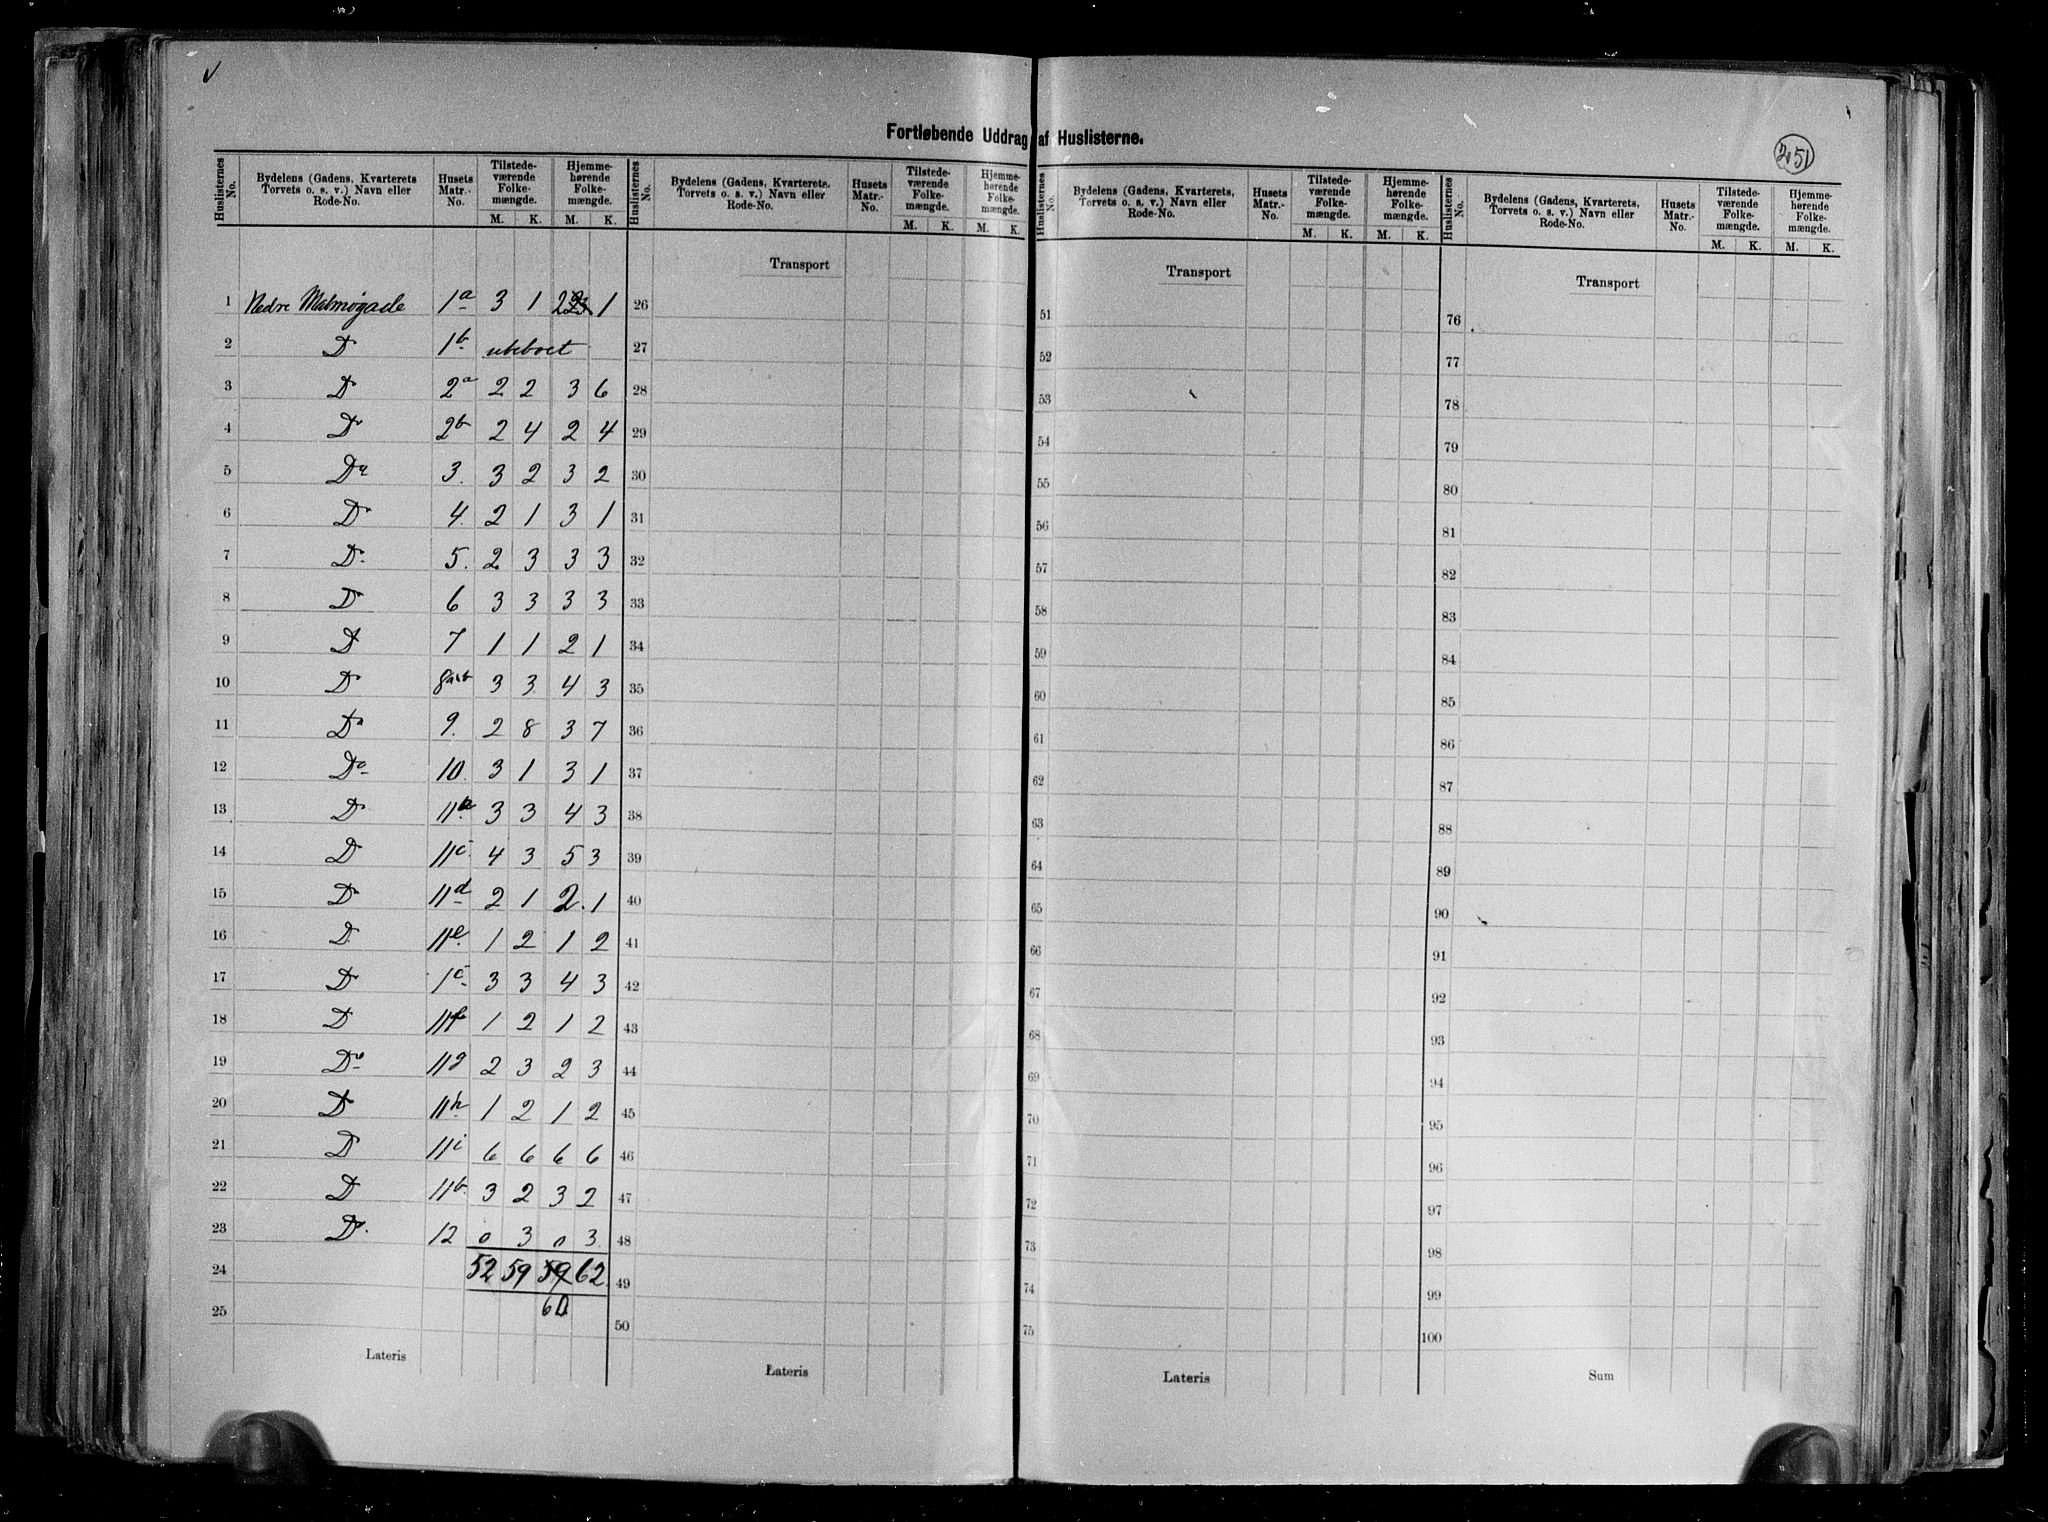 Fortløbende Uddrag af Huslisterne.
251
Huslisternes No. | Bydelens (Gadens, Kvarterets, Torvets o. s. v.) Navn eller Rode-No. | Husets Matr.-No. | Tilstedeværende Folkemængde. M. K. | Hjemmehørende Folkemængde. M. K.
1 Nedre Malmøgade 1a 3 1 2 1
2 D 1b ubeboet
3 Do 2a 2 2 3 6
4 Do 2b 2 4 2 4
5 Do 3. 3 2 3 2
6 Do 4. 2 1 3 1
7 Do 5. 2 3 3 3
8 Do 6 3 3 3 3
9 D 7 1 1 2 1
10 Do 8a&b 3 3 4 3
11 Do 9. 2 8 3 7
12 Do 10. 3 1 3 1
13 Do 11a 3 3 4 3
14 D 11c 4 3 5 3
15 Do 11d 2 1 2. 1
16 D 11e. 1 2 1 2
17 Do 1c 3 3 4 3
18 D 11f 1 2 1 2
19 Do 11g 2 3 2 3
20 Do 11h 1 2 1 2
21 Do 11i 6 6 6 6
22 D 11b. 3 2 3 2
23 Do. 12 0 3 0 3
24 52 59 59 62
25 60
Lateris
Huslisternes No. | Bydelens (Gadens, Kvarterets, Torvets o. s. v.) Navn eller Rode-No. | Husets Matr.-No. | Tilstedeværende Folkemængde. M. K. | Hjemmehørende Folkemængde. M. K.
Transport
26
27
28
29
30
31
32
33
34
35
36
37
38
39
40
41
42
43
44
45
46
47
48
49
50
Lateris
Huslisternes No. | Bydelens (Gadens, Kvarterets, Torvets o. s. v.) Navn eller Rode-No. | Husets Matr.-No. | Tilstedeværende Folkemængde. M. K. | Hjemmehørende Folkemængde. M. K.
Transport
51
52
53
54
55
56
57
58
59
60
61
62
63
64
65
66
67
68
69
70
71
72
73
74
75
Lateris
Huslisternes No. | Bydelens (Gadens, Kvarterets, Torvets o. s. v.) Navn eller Rode-No. | Husets Matr.-No. | Tilstedeværende Folkemængde. M. K. | Hjemmehørende Folkemængde. M. K.
Transport
76
77
78
79
80
81
82
83
84
85
86
87
88
89
90
91
92
93
94
95
96
97
98
99
100
Sum